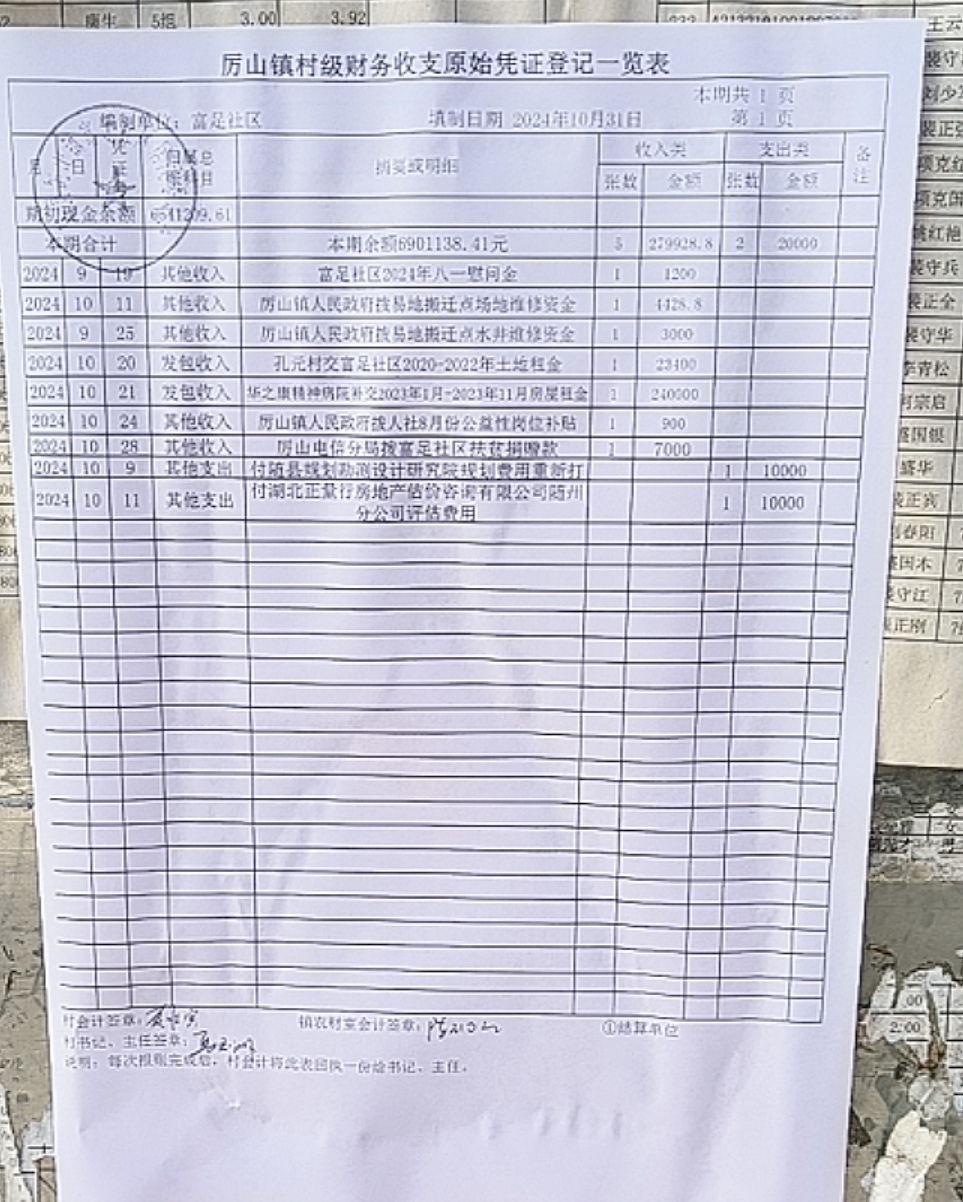 唐生 5组 3.00 3.92
厉山镇村级财务收支原始凭证登记一览表
本期共 1 页
编制单位：富足社区 填制日期 2024年10月31日 第 1 页
月 日 凭证号 归属总账科目 摘要或明细 收入类 支出类 备注
张数 金额 张数 金额
期初现金余额 6641209.61
本期合计 本期余额6901138.41元 5 279928.8 2 20000
2024 9 19 其他收入 富足社区2024年八一慰问金 1 1200
2024 10 11 其他收入 厉山镇人民政府拨易地搬迁点场地维修资金 1 4428.8
2024 9 25 其他收入 厉山镇人民政府拨易地搬迁点水井维修资金 1 3000
2024 10 20 发包收入 孔元村交富足社区2020-2022年土地租金 1 23400
2024 10 21 发包收入 华之康精神病院补交2023年1月-2023年11月房屋租金 1 240000
2024 10 24 其他收入 厉山镇人民政府拨人社8月份公益性岗位补贴 1 900
2024 10 28 其他收入 厉山电信分局拨富足社区扶贫捐赠款 1 7000
2024 10 9 其他支出 付随县规划勘测设计研究院规划费用重新打 1 10000
2024 10 11 其他支出 付湖北正量行房地产估价咨询有限公司随州分公司评估费用 1 10000
村会计签章： 镇农财室会计签章： ①结算单位
村书记、主任签章：
说明：每次报账完成后，村会计将此表回执一份给书记、主任。
王云
裴守
刘少
裴正强
项克红
项克国
姚红艳
裴守兵
裴正全
裴守华
李青松
何宗启
盛国银
盛华
裴正宾
刘春阳
盛国木
裴守江
裴正刚
.00
2.00